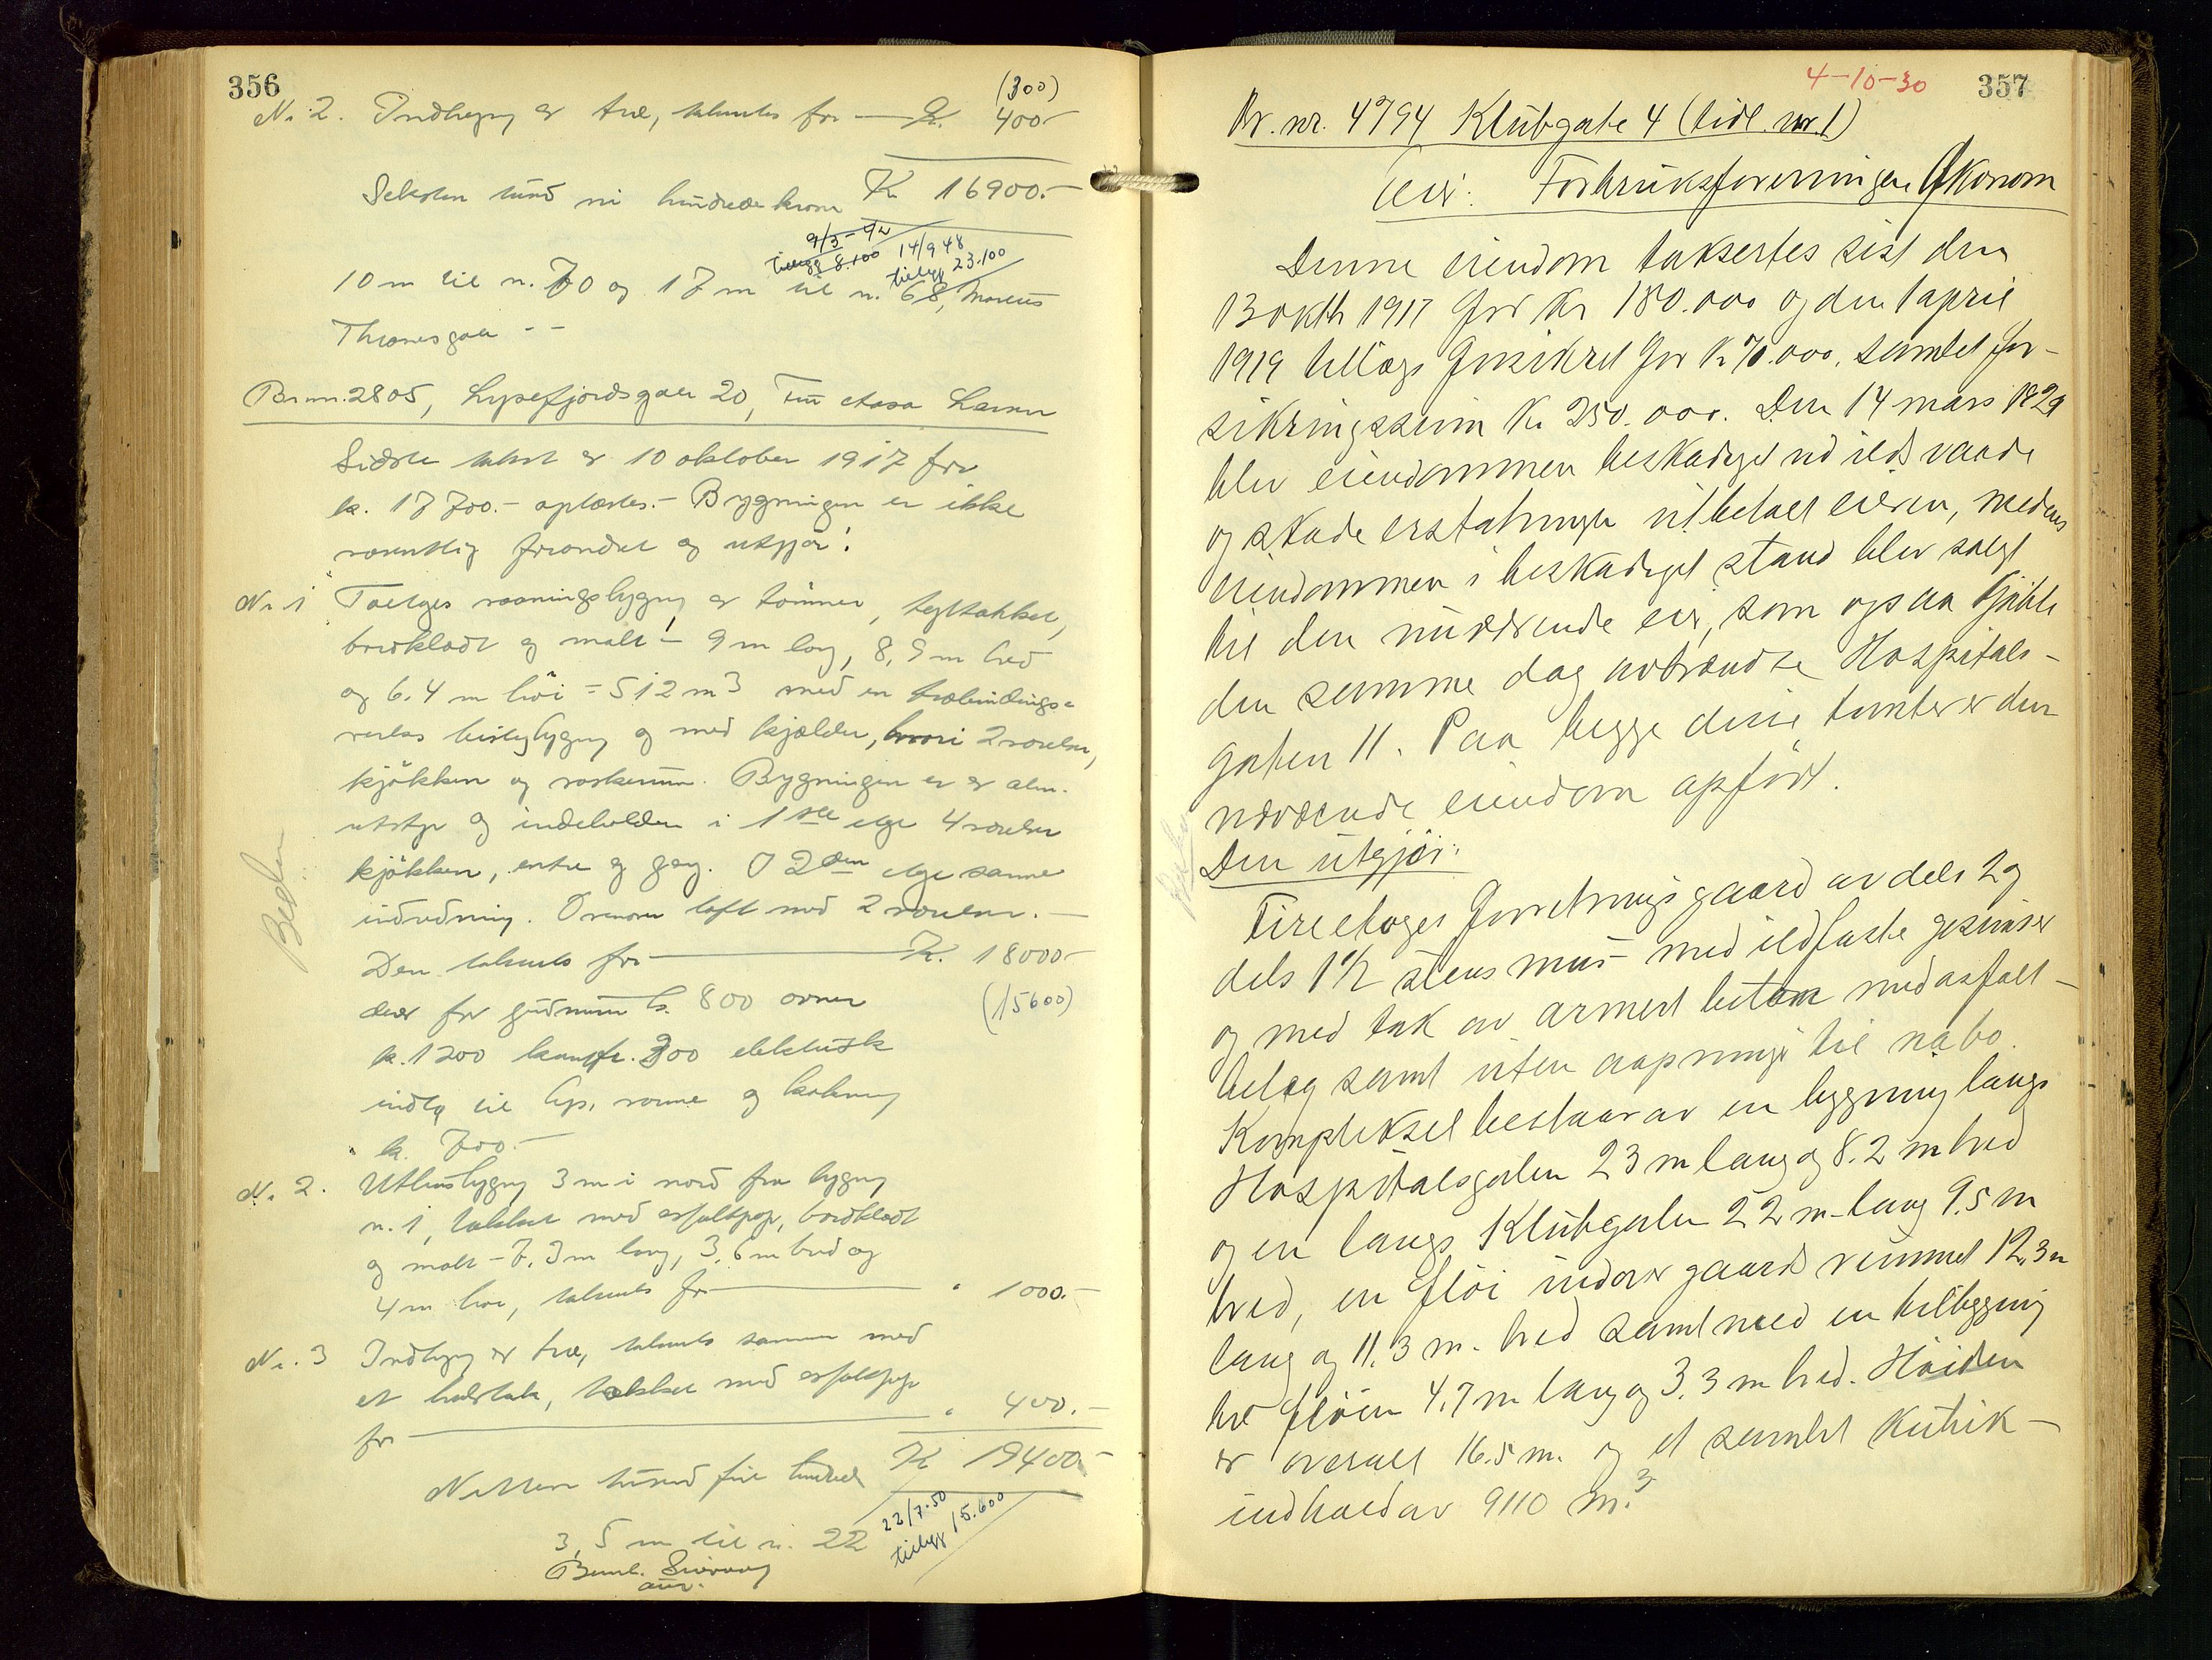 356
(300)
Nr. 2. Indhegn av træ, takseres for — K. 400.-
Seksten tusind ni hundrede kroner K 16900.-
9/3-42 14/9 48
tillegg 8.100 tillegg 23.100
10 m til nr. 70 og 17 m til nr. 68, Marcus
Thranesgate - -
Br.nr. 2805, Lysefjordsgaten 20, Eier
Sidste takst er 10 oktober 1917 for
kr. 17700.- oplæstes.- Bygningen er ikke
væsentlig forandret og utgjør:
Nr. 1 Toetages vaaningsbygning av tømmer, tegltækket,
bordklædt og malt - 9 m lang, 8,9 m bred
og 6.4 m høi = 512 m3 med en træbindings-
verks bislagbygning og med kjælder, hvori 2 værelser,
kjøkken og vaskerum. Bygningen er av alm.
utstyr og indeholder i 1ste etage 4 værelser
kjøkken, entre og gang. I 2den etage samme
indredning. Ovenover loft med 2 værelser. —
Den takseres for — K. 18000.-
derav for grundmur k. 800 ovner (15600)
k. 1200 komfr. 300 elektrisk
indlæg til lys, varme og kokning
k. 700.-
Nr. 2. Uthusbygning 3 m i nord for bygning
nr. 1, tækket med asfaltpap, bordklædt
og malt - 7.3 m lang, 3,6 m bred og
4 m høi, takseres for — " 1000.-
Nr. 3 Indhegn av træ, takseres sammen med
et halvtak, tækket med asfaltpap
for — " 400.-
Nitten tusind fire hundrede K 19400.-
22/7.50
tillegg 15.600
3,5 m til nr. 22
Bernh.
Beder
4-10-30 357
Br. nr. 4794 Klubgate 4 (tidl. nr. 1)
Eier: Forbruksforeningen Økonom
Denne eiendom taksertes sist den
13 oktb 1917 for Kr 180.000 og den 1 april
1919 tillægsforsikret for Kr 70.000, samlet for-
sikringssum Kr 250.000. Den 14 mars 1929
blev eiendommen beskadiget ved ildsvaade
og skadeerstatningen utbetalt eieren, medens
eiendommen i beskadiget stand blev solgt
til den nuværende eier, som ogsaa kjøbte
den samme dag avbrændte Hospitals-
gaten 11. Paa begge disse tomter er den
nærværende eiendom opført.
Den utgjør:
Fireetages forretningsgaard av dels 2 og
dels 1 1/2 stens mur med ildfaste gesimser
og med tak av armert beton med asfalt-
belæg samt uten aapninger til nabo.
Komplekset bestaar av en bygning langs
Hospitalsgaten 23 m lang og 8.2 m bred
og en langs Klubgaten 22 m lang 9.5 m
bred, en fløi indover gaardsrummet 12,3 m
lang og 11.3 m. bred samt med en tilbygning
til fløien 4.7 m lang og 3.3 m bred. Høiden
er overalt 16.5 m. og et samlet kubik-
indhold av 9110 m.3